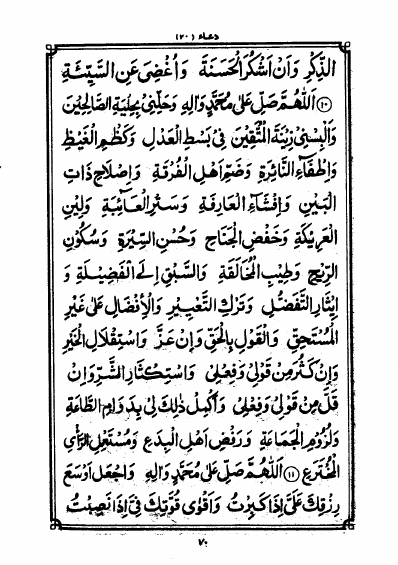 دعاء (٢٠)
الذِّكْرِ وَاَنْ اَشْكُرَ الْحَسَنَةَ وَاُغْضِيَ عَنِ السَّيِّئَةِ
(١٠) اَللّٰهُمَّ صَلِّ عَلٰى مُحَمَّدٍ وَاٰلِهٖ وَحَلِّنِيْ بِحِلْيَةِ الصَّالِحِيْنَ
وَاَلْبِسْنِيْ زِيْنَةَ الْمُتَّقِيْنَ فِيْ بَسْطِ الْعَدْلِ وَكَظْمِ الْغَيْظِ
وَاِطْفَآءِ النَّآئِرَةِ وَضَمِّ اَهْلِ الْفُرْقَةِ وَاِصْلَاحِ ذَاتِ
الْبَيْنِ وَاِفْشَآءِ الْعَارِفَةِ وَسَتْرِ الْعَآئِبَةِ وَلِيْنِ
الْعَرِيْكَةِ وَخَفْضِ الْجَنَاحِ وَحُسْنِ السِّيْرَةِ وَسُكُوْنِ
الرِّيْحِ وَطِيْبِ الْمُخَالَقَةِ وَالسَّبْقِ اِلَى الْفَضِيْلَةِ وَ
اِيْثَارِ التَّفَضُّلِ وَتَرْكِ التَّعْيِيْرِ وَالْاِفْضَالِ عَلٰى غَيْرِ
الْمُسْتَحِقِّ وَالْقَوْلِ بِالْحَقِّ وَاِنْ عَزَّ وَاسْتِقْلَالِ الْخَيْرِ
وَاِنْ كَثُرَ مِنْ قَوْلِيْ وَفِعْلِيْ وَاسْتِكْثَارِ الشَّرِّ وَاِنْ
قَلَّ مِنْ قَوْلِيْ وَفِعْلِيْ وَاَكْمِلْ ذٰلِكَ لِيْ بِدَوَامِ الطَّاعَةِ
وَلُزُوْمِ الْجَمَاعَةِ وَرَفْضِ اَهْلِ الْبِدَعِ وَمُسْتَعْمِلِ الرَّأْيِ
الْمُخْتَرَعِ (١١) اَللّٰهُمَّ صَلِّ عَلٰى مُحَمَّدٍ وَاٰلِهٖ وَاجْعَلْ اَوْسَعَ
رِزْقِكَ عَلَيَّ اِذَا كَبِرْتُ وَاَقْوٰى قُوَّتِكَ فِيَّ اِذَا نَصِبْتُ
٧٠